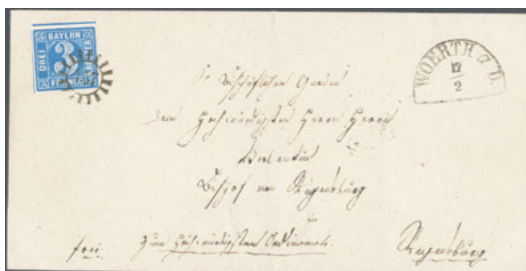 BAYERN
DREI
3
KREUZER
FRANCO
WOERTH a/D.
17
2
Seiner Bischöflichen Gnaden
dem Hochwürdigsten Herrn Herrn
Valentin
Bischof von Regensburg
in
frei. zum Hochwürdigsten Ordinariate. Regensburg